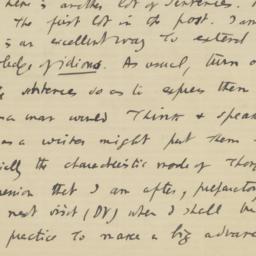 here is another lot of sentences.
The first lot in the post. I am
is an excellent way to extend
ledge of idiom. As usual, turn o
sentences so as to express them
man would think & speak
as a writer might put them
ially the characteristic mode of
ession that I am after, preparatory
next visit (DV) when I shall
practice to make a big advance